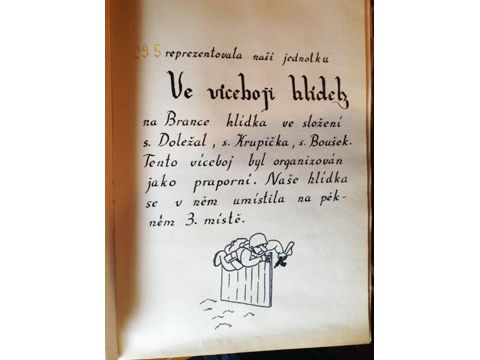 29.5 reprezentovala naši jednotku
Ve víceboji hlídek
na Brance hlídka ve složení
s. Doležal, s. Krupička, s. Boušek.
Tento víceboj byl organizován
jako praporní. Naše hlídka
se v něm umístila na pěk-
ném 3. místě.